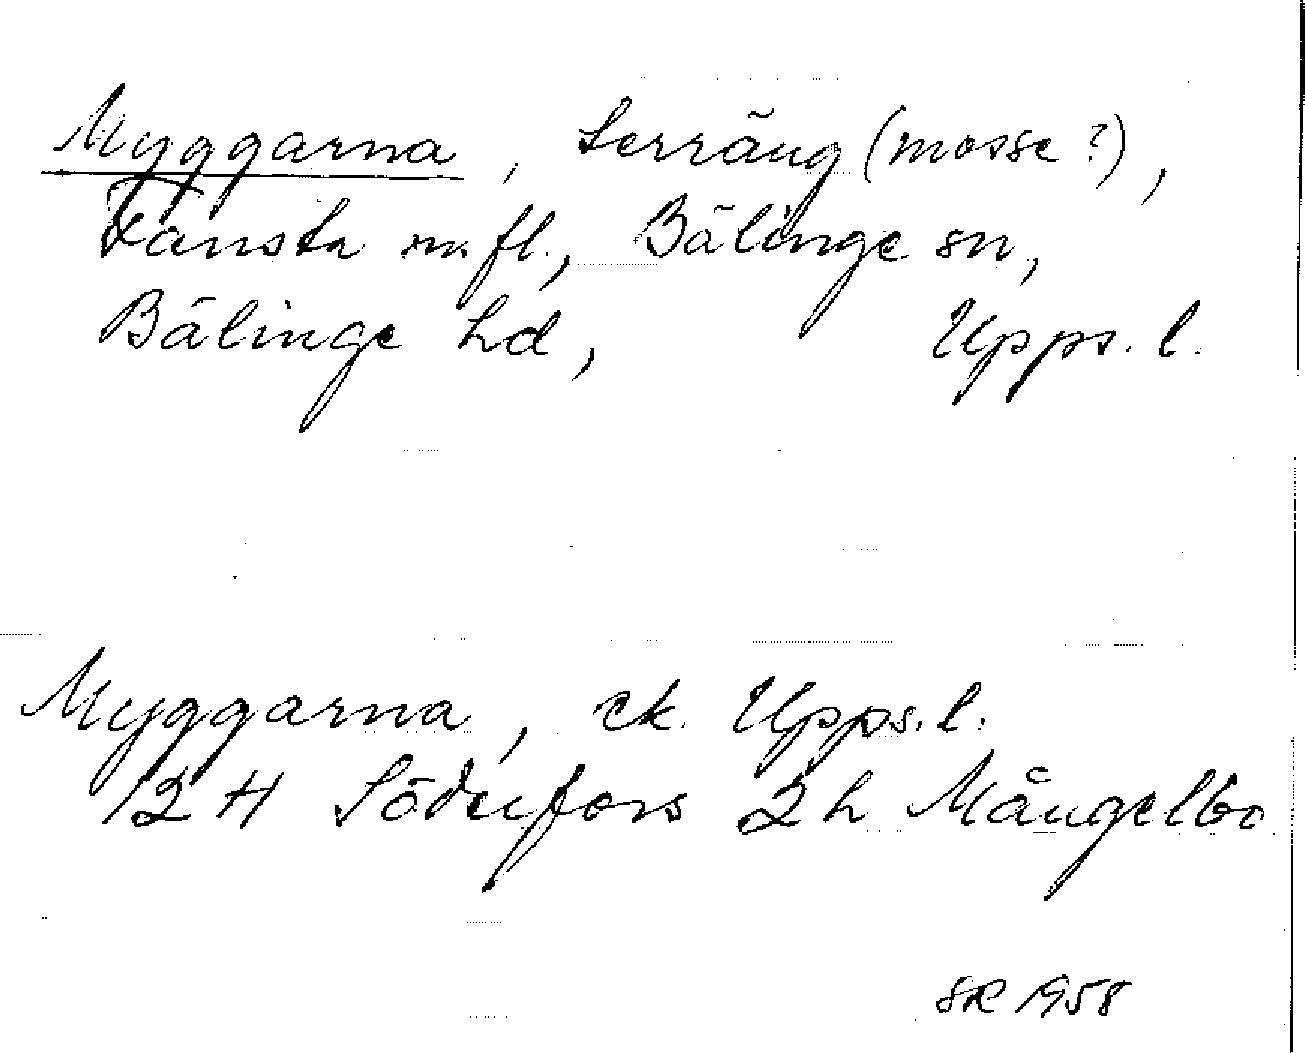 Myggarna, Terräng (mosse?),
m fl., Bälinge sn,
Bälinge hd, Upps. l.
Myggarna, ek. Upps. l.
12 H Söderfors 2 h Mångelbo
SR 1958